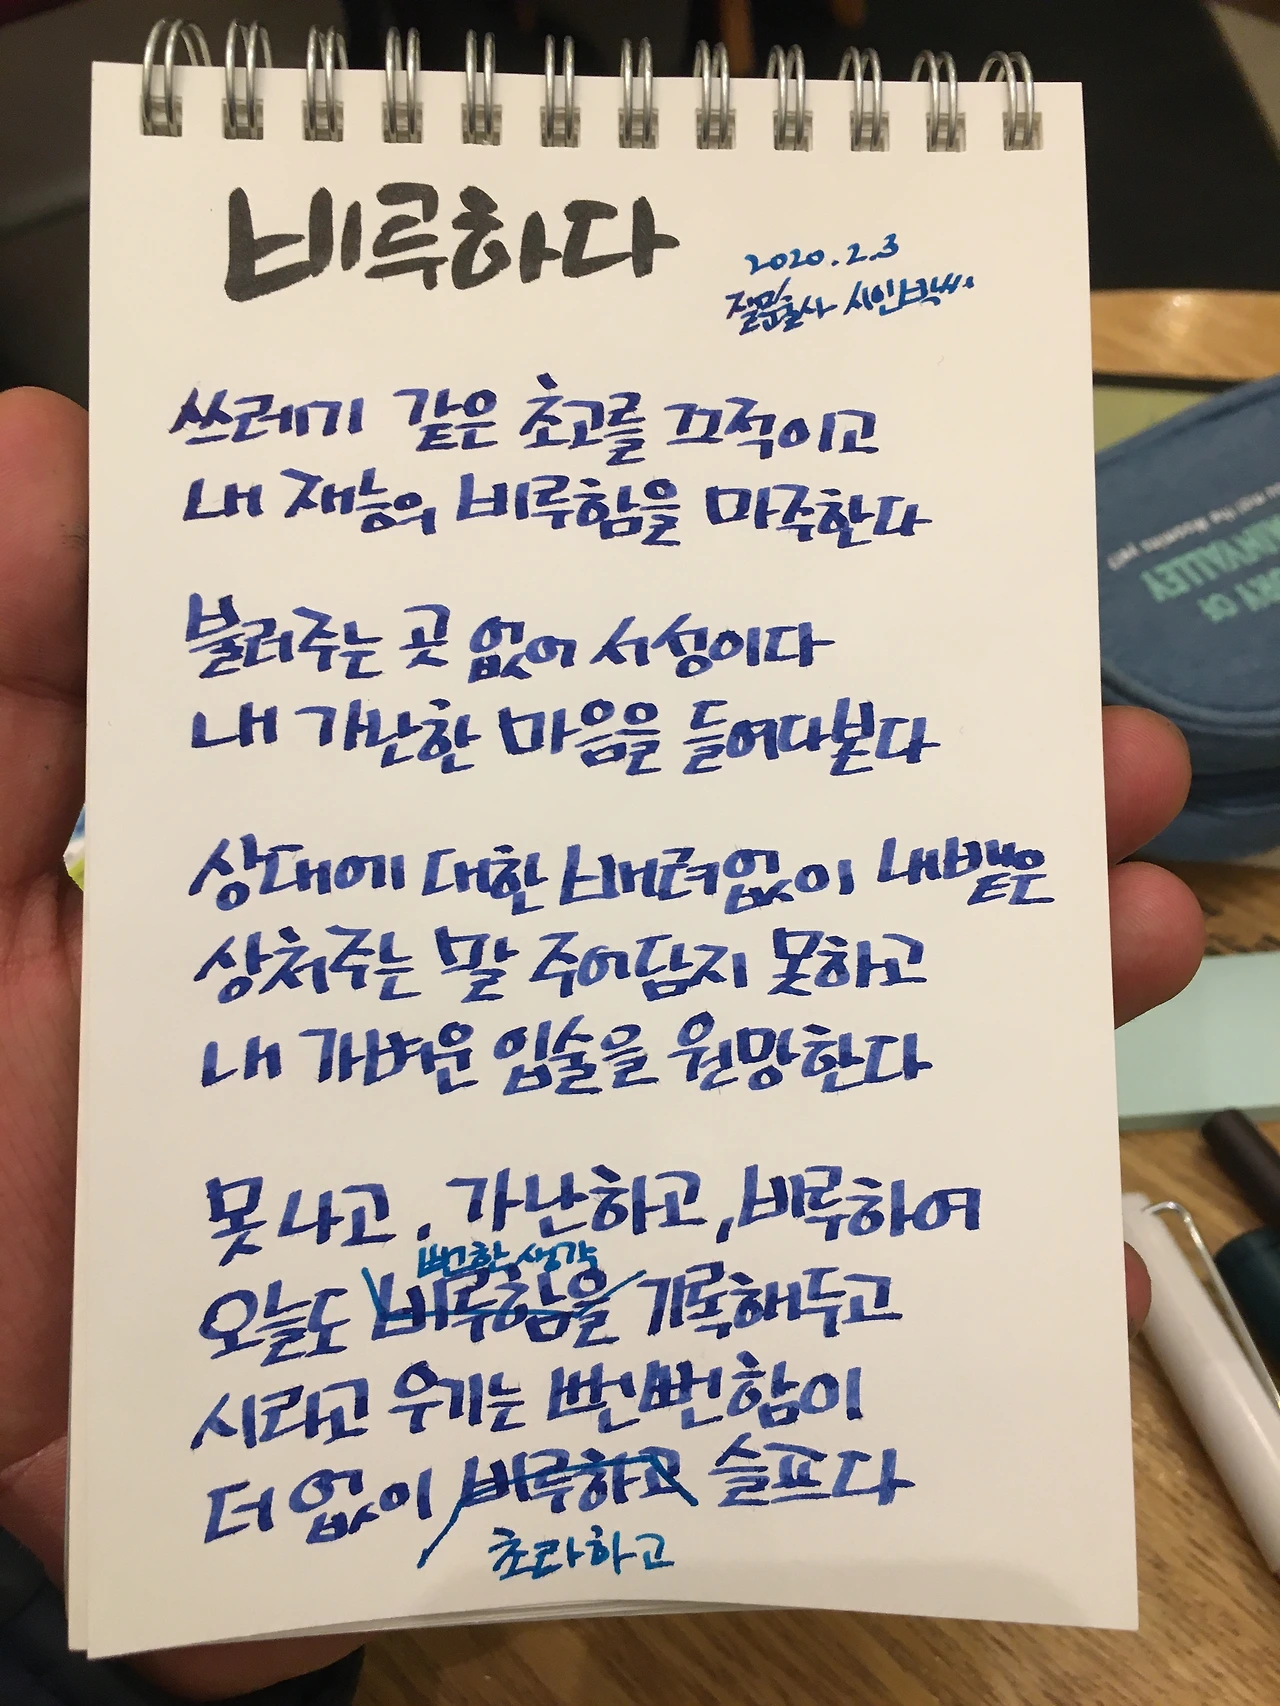 비루하다
2020.2.3
질문술사 시인박씨
쓰레기 같은 초고를 끄적이고
내 재능의 비루함을 마주한다
불러주는 곳 없어 서성이다
내 가난한 마음을 들여다본다
상대에 대한 배려없이 내뱉은
상처주는 말 주어담지 못하고
내 가벼운 입술을 원망한다
못나고, 가난하고, 비루하여
뻔한 생각
오늘도 비루함을 기록해두고
시라고 우기는 뻔뻔함이
더 없이 비루하고 슬프다
초라하고